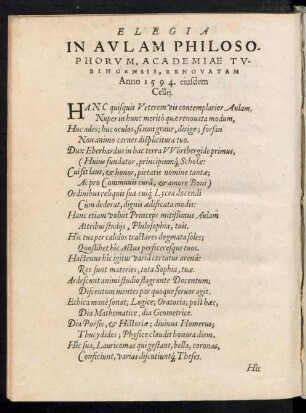 ELEGIA
IN AVLAM PHILOSO-
PHORVM, ACADEMIAE TV-
BINGENSIS, RENOVATAM
Anno 1594. eiusdem
Cellij.
HANC quisquis Veterem vis contemplarier Aulam,
Nuper in hunc meritò quae renouata modum,
Huc ades; huc oculos, si non graue, dirige; forsan
Non animo cernes displicitura tuo.
Dux Eberhardus in hac terra VVürtbergide primus,
(Huius fundator, principiumq́ Scholae:
Cui sit laus, & honor, pietatis nomine tantae;
Ac pro Communis curâ, & amore Boni)
Ordinibus reliquis sua cuiq́ Lycea docendi
Cum dederat, dignis aedificata modis:
Hanc etiam voluit Princeps mitissimus Aulam
Attribui studijs, Philosophia, tuis.
Hîc tua per calidos tractares dogmata soles;
Quoslibet hîc Actus perficeresque tuos.
Hactenus hîc igitur variâ certatur arenâ:
Res sunt materies, tota Sophia, tuae.
Ardescunt animi studio flagrante Docentum;
Discentum mentes par quoque feruor agit.
Ethica manè sonat; Logice; Oratoria; post haec,
Dia Mathematice, dia Geometrice.
Dia Poësis, & Historiae; diuinus Homerus;
Thucydides; Physice claudit honora diem.
Hîc sua, Lauricomas qui gestant, bella, coronas,
Conficiunt, varias discutiuntq́ Theses.
Hîc